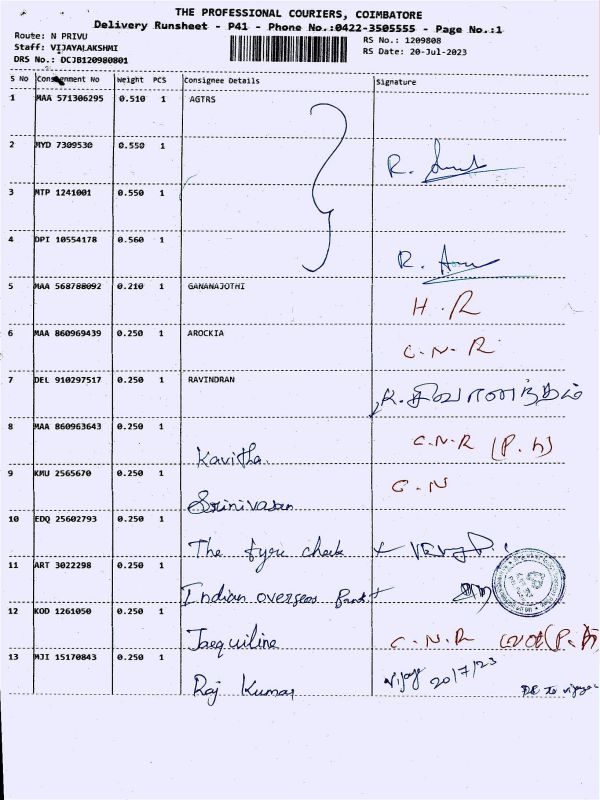 THE PROFESSIONAL COURIERS, COIMBATORE
Delivery Runsheet - P41 - Phone No.:0422-3505555 - Page No.:1
Route: N PRIVU
RS No.: 1209808
Staff: VIJAYALAKSHMI
RS Date: 20-Jul-2023
DRS No.: DCJB120980801
S No Consignment No Weight PCS Consignee Details Signature
1 MAA 571306295 0.510 1 AGTRS
2 MYD 7309530 0.550 1
R.
3 MTP 1241001 0.550 1
4 DPI 10554178 0.560 1
R.
5 MAA 568788092 0.210 1 GANANAJOTHI
H.R
6 MAA 860969439 0.250 1 AROCKIA
C.N.R
7 DEL 910297517 0.250 1 RAVINDRAN
8 MAA 860963643 0.250 1
Kavitha C.N.R
9 KMU 2565670 0.250 1
Srinivasan C.N
10 EDQ 25602793 0.250 1
The
11 ART 3022298 0.250 1
Indian overseas Bank
12 KOD 1261050 0.250 1
Jaequiline C.N.R
13 MJI 15170843 0.250 1
Raj Kumar Vijay 20/7/23